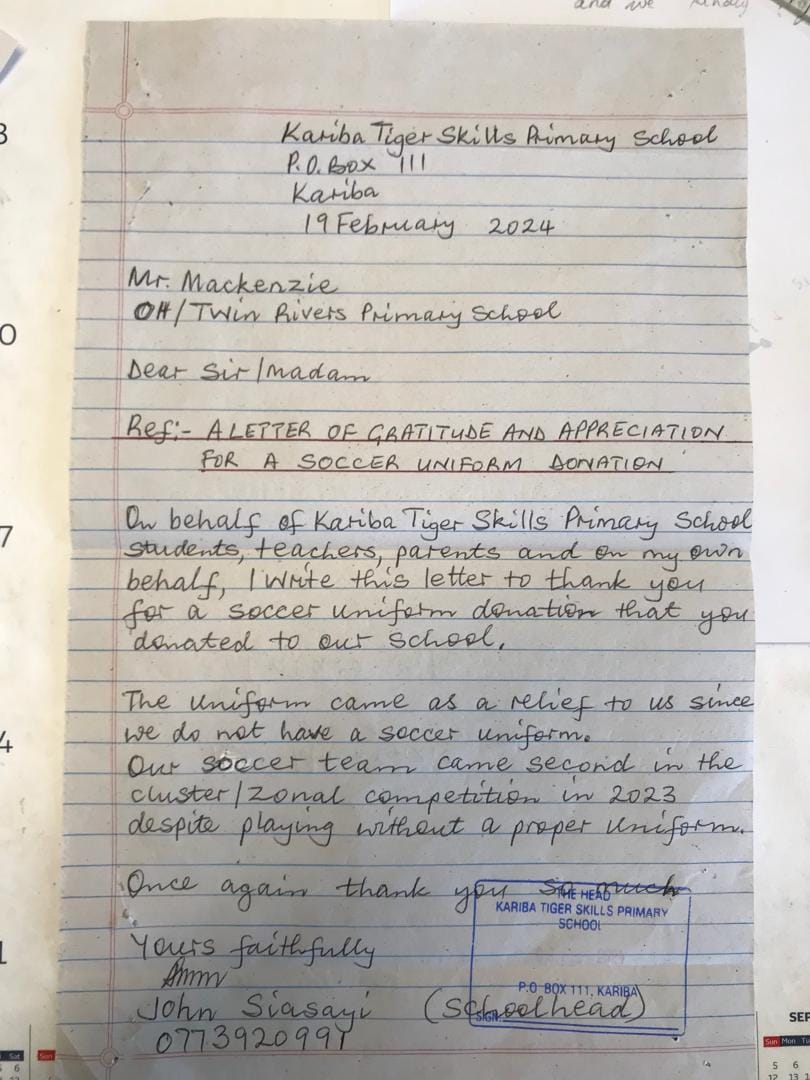 and we kindly
Kariba Tiger Skills Primary School
P.O. Box 111
Kariba
19 February 2024
Mr. Mackenzie
OH/Twin Rivers Primary School
Dear Sir/madam
Ref:- A LETTER OF GRATITUDE AND APPRECIATION
FOR A SOCCER UNIFORM DONATION
On behalf of Kariba Tiger Skills Primary School
students, teachers, parents and on my own
behalf, I write this letter to thank you
for a soccer uniform donation that you
donated to our school.
The uniform came as a relief to us since
we do not have a soccer uniform.
Our soccer team came second in the
cluster/zonal competition in 2023
despite playing without a proper uniform.
Once again thank you so much
THE HEAD
KARIBA TIGER SKILLS PRIMARY
SCHOOL
P.O BOX 111, KARIBA
SIGN:
Yours faithfully
John Siasayi (Schoolhead)
0773920991
3
0
7
4
1
Sat
6
Sun
SEP
Sun Mon Tu
5 6
12 13